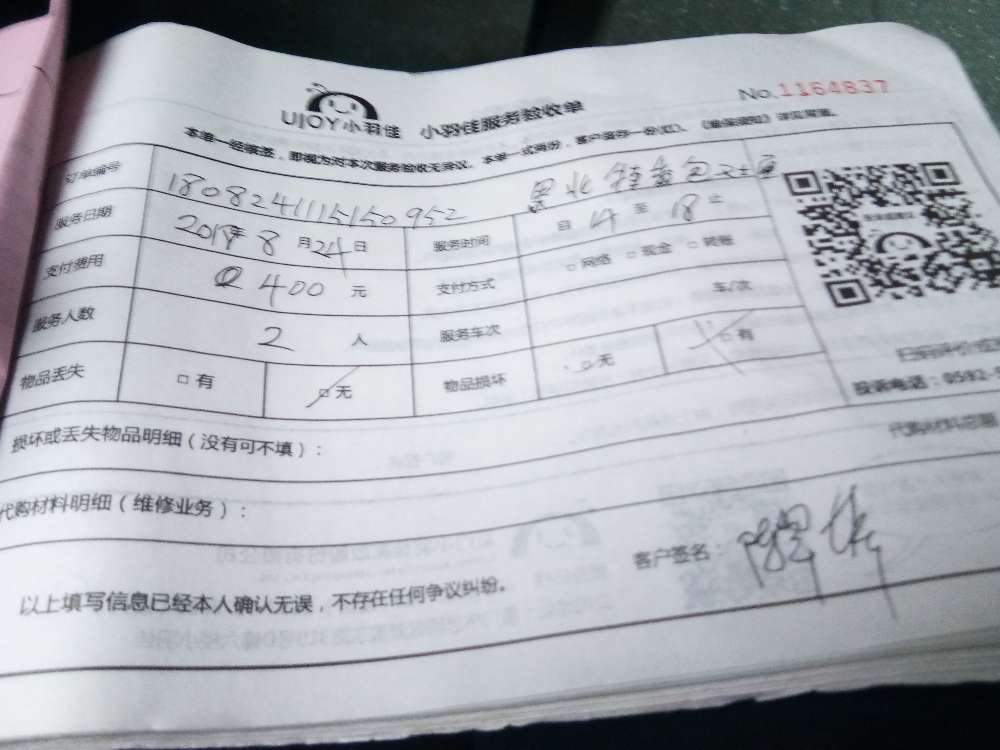 No.1164837
UJOY小羽佳 小羽佳服务验收单
本单一经填签，即视为对本次服务验收无异议。本单一式两份，客户留存一份(红)。
订单编号 180824111515095
服务日期 2018年8月24日 服务时间 自14至18止
支付费用 400元 支付方式 □网络 □现金 □转账
服务人数 2人 服务车次 车/次
物品丢失 □有 □无 物品损坏 □无 □有
投诉电话：0592-
损坏或丢失物品明细（没有可不填）：
代购材料明细（维修业务）：
以上填写信息已经本人确认无误，不存在任何争议纠纷。 客户签名：